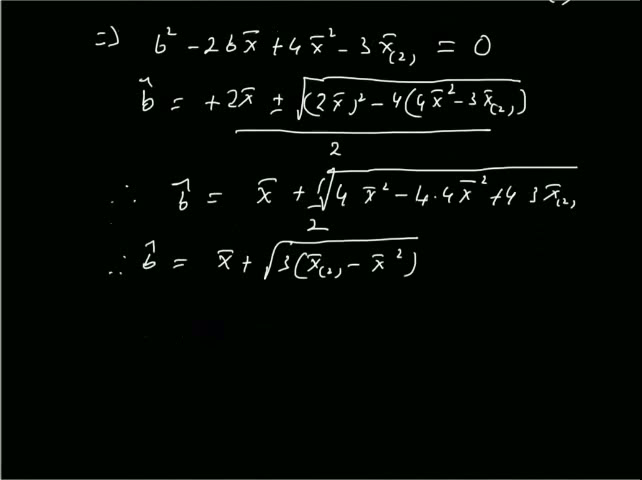 ⇒ b² - 2bx̄ + 4x̄² - 3x̄₍₂₎ = 0
b̂ = +2x̄ ± √((2x̄)² - 4(4x̄² - 3x̄₍₂₎)) / 2
∴ b̂ = x̄ + 1/2 √(4x̄² - 4·4x̄² + 4 3x̄₍₂₎)
∴ b̂ = x̄ + √(3(x̄₍₂₎ - x̄²))